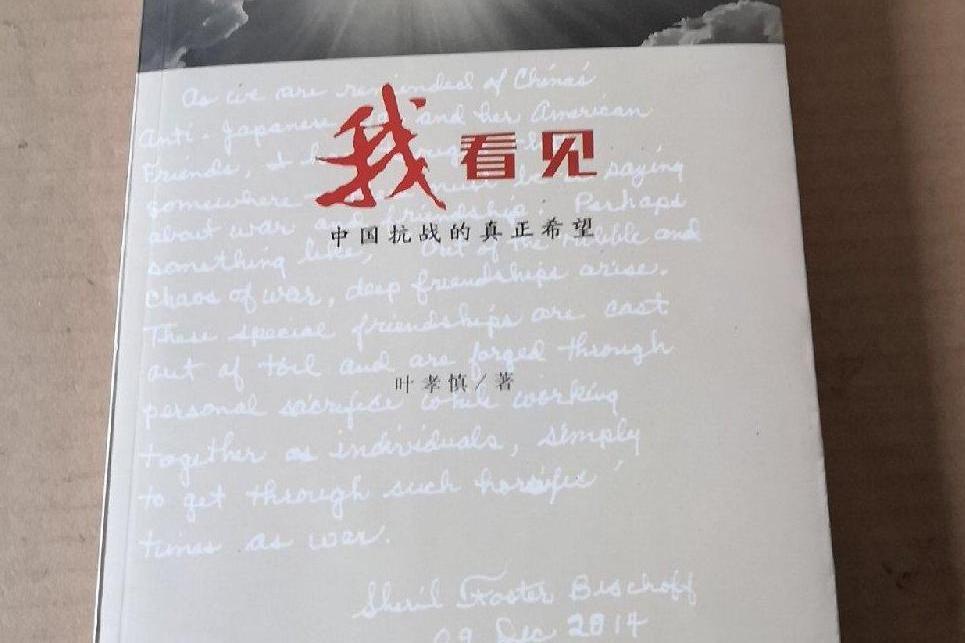 As we are reminded of China's
Anti-Japanese and her American
Friends, I
somewhere must be saying
about war and friendship. Perhaps
something like, "Out of the rubble and
chaos of war, deep friendships arise.
These special friendships are cast
out of toil and are forged through
personal sacrifice while working
together as individuals, simply
to get through such horrific
times as war.
我看见
中国抗战的真正希望
叶孝慎/著
Sheril Foster Bischoff
09 Dec 2014